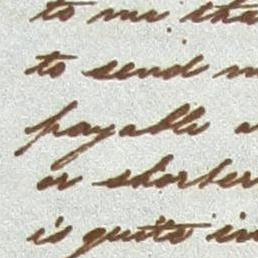 to me tha
to send m
payable a
or shorter
is quite in